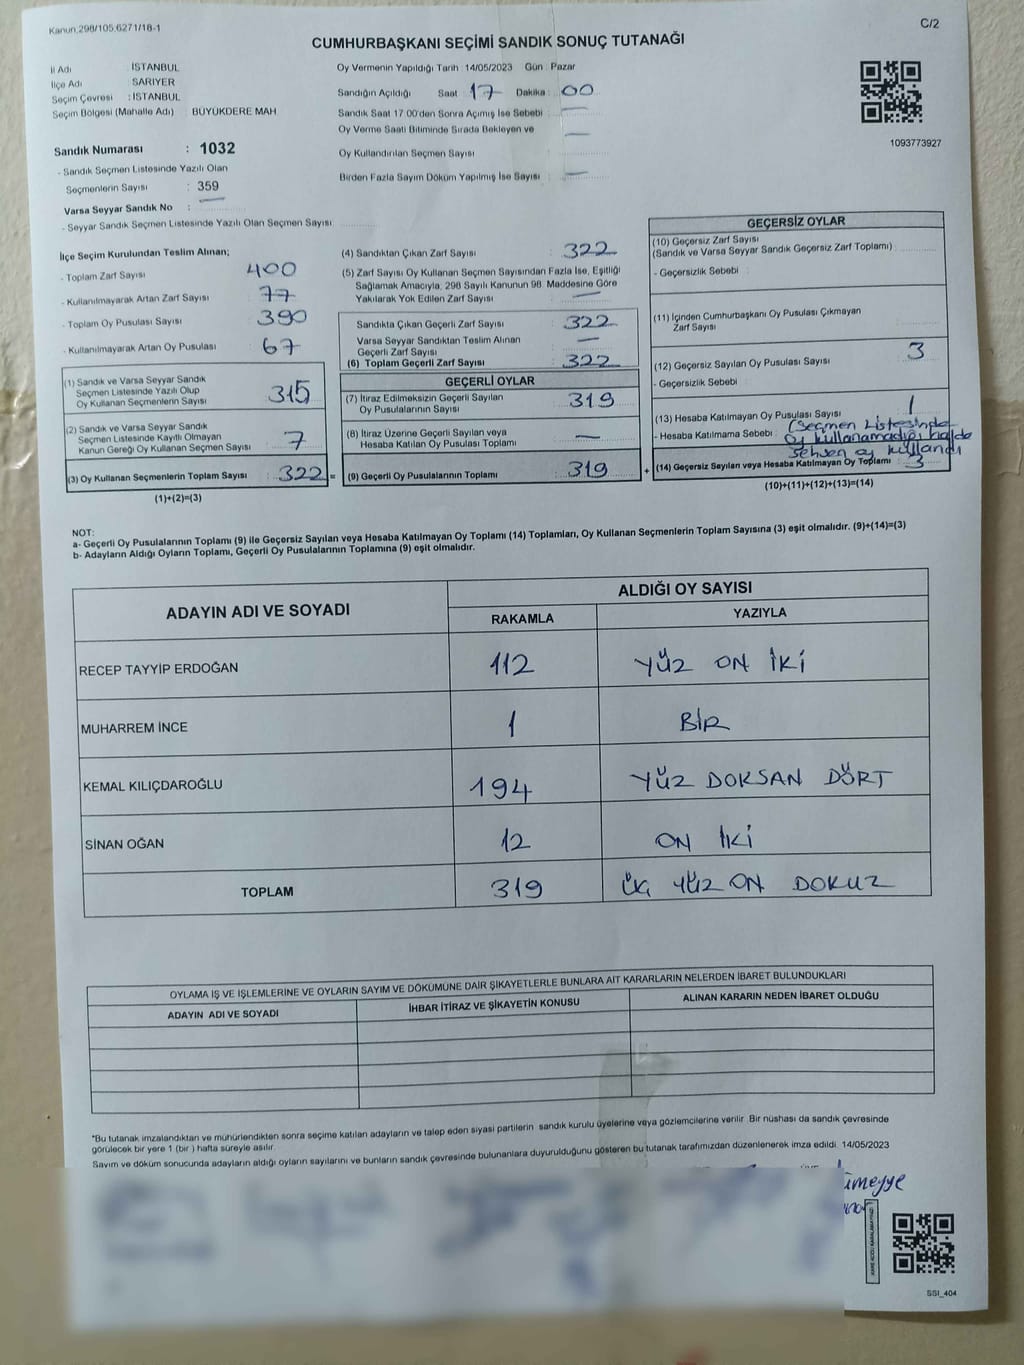 Kanun,298/105,6271/18-1
C/2
CUMHURBAŞKANI SEÇİMİ SANDIK SONUÇ TUTANAĞI
İl Adı İSTANBUL
İlçe Adı SARIYER
Seçim Çevresi : İSTANBUL
Seçim Bölgesi (Mahalle Adı) BÜYÜKDERE MAH
Oy Vermenin Yapıldığı Tarih 14/05/2023 Gün Pazar
Sandığın Açıldığı Saat 17 Dakika : 00
Sandık Saat 17 00'den Sonra Açımış İse Sebebi
Oy Verme Saati Bitiminde Sırada Bekleyen ve
Oy Kullandırılan Seçmen Sayısı
Birden Fazla Sayım Döküm Yapılmış İse Sayısı
1093773927
Sandık Numarası : 1032
- Sandık Seçmen Listesinde Yazılı Olan
Seçmenlerin Sayısı : 359
Varsa Seyyar Sandık No :
- Seyyar Sandık Seçmen Listesinde Yazılı Olan Seçmen Sayısı
İlçe Seçim Kurulundan Teslim Alınan;
- Toplam Zarf Sayısı 400
- Kullanılmayarak Artan Zarf Sayısı 77
- Toplam Oy Pusulası Sayısı 390
- Kullanılmayarak Artan Oy Pusulası 67
(1) Sandık ve Varsa Seyyar Sandık
Seçmen Listesinde Yazılı Olup
Oy Kullanan Seçmenlerin Sayısı 315
(2) Sandık ve Varsa Seyyar Sandık
Seçmen Listesinde Kayıtlı Olmayan
Kanun Gereği Oy Kullanan Seçmen Sayısı 7
(3) Oy Kullanan Seçmenlerin Toplam Sayısı : 322 =
(1)+(2)=(3)
(4) Sandıktan Çıkan Zarf Sayısı : 322
(5) Zarf Sayısı Oy Kullanan Seçmen Sayısından Fazla İse, Eşitliği
Sağlamak Amacıyla, 298 Sayılı Kanunun 98. Maddesine Göre
Yakılarak Yok Edilen Zarf Sayısı
Sandıkta Çıkan Geçerli Zarf Sayısı 322
Varsa Seyyar Sandıktan Teslim Alınan
Geçerli Zarf Sayısı
(6) Toplam Geçerli Zarf Sayısı 322
GEÇERLİ OYLAR
(7) İtiraz Edilmeksizin Geçerli Sayılan
Oy Pusulalarının Sayısı 319
(8) İtiraz Üzerine Geçerli Sayılan veya
Hesaba Katılan Oy Pusulası Toplamı
(9) Geçerli Oy Pusulalarının Toplamı 319 +
GEÇERSİZ OYLAR
(10) Geçersiz Zarf Sayısı
(Sandık ve Varsa Seyyar Sandık Geçersiz Zarf Toplamı)
- Geçersizlik Sebebi :
(11) İçinden Cumhurbaşkanı Oy Pusulası Çıkmayan
Zarf Sayısı
(12) Geçersiz Sayılan Oy Pusulası Sayısı 3
- Geçersizlik Sebebi
(13) Hesaba Katılmayan Oy Pusulası Sayısı 1
- Hesaba Katılmama Sebebi (Seçmen Listesinde
oy kullanamadığı halde
sehven oy kullandı
(14) Geçersiz Sayılan veya Hesaba Katılmayan Oy Toplamı 3
(10)+(11)+(12)+(13)=(14)
NOT:
a- Geçerli Oy Pusulalarının Toplamı (9) ile Geçersiz Sayılan veya Hesaba Katılmayan Oy Toplamı (14) Toplamları, Oy Kullanan Seçmenlerin Toplam Sayısına (3) eşit olmalıdır. (9)+(14)=(3)
b- Adayların Aldığı Oyların Toplamı, Geçerli Oy Pusulalarının Toplamına (9) eşit olmalıdır.
ADAYIN ADI VE SOYADI
ALDIĞI OY SAYISI
RAKAMLA YAZIYLA
RECEP TAYYİP ERDOĞAN 112 YÜZ ON İKİ
MUHARREM İNCE 1 BİR
KEMAL KILIÇDAROĞLU 194 YÜZ DOKSAN DÖRT
SİNAN OĞAN 12 ON İKİ
TOPLAM 319 ÜÇ YÜZ ON DOKUZ
OYLAMA İŞ VE İŞLEMLERİNE VE OYLARIN SAYIM VE DÖKÜMÜNE DAİR ŞİKAYETLERLE BUNLARA AİT KARARLARIN NELERDEN İBARET BULUNDUKLARI
ADAYIN ADI VE SOYADI İHBAR İTİRAZ VE ŞİKAYETİN KONUSU ALINAN KARARIN NEDEN İBARET OLDUĞU
*Bu tutanak imzalandıktan ve mühürlendikten sonra seçime katılan adayların ve talep eden siyasi partilerin sandık kurulu üyelerine veya gözlemcilerine verilir Bir nüshası da sandık çevresinde
görülecek bir yere 1 (bir ) hafta süreyle asılır.
Sayım ve döküm sonucunda adayların aldığı oyların sayılarını ve bunların sandık çevresinde bulunanlara duyurulduğunu gösteren bu tutanak tarafımızdan düzenlenerek imza edildi 14/05/2023
ümeyye
SSI_404